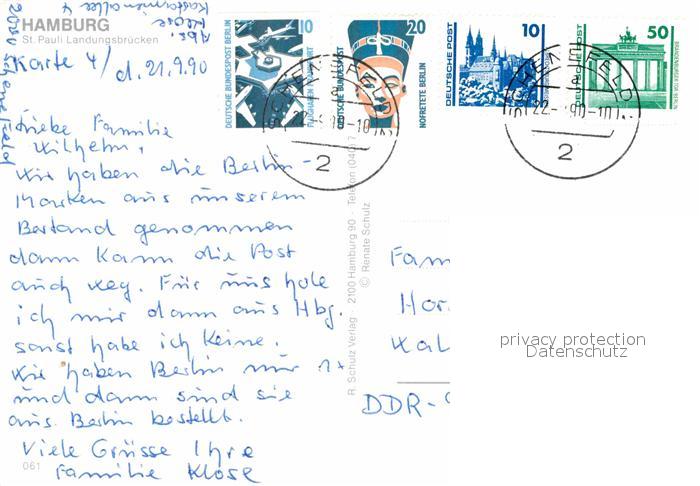 HAMBURG
St. Pauli Landungsbrücken
Abs. Klose
Kastanienallee 4
Karte 4/ d. 21.9.90
Liebe Familie
Wilhelm,
Wir haben die Berlin-
Marken aus unserem
Bestand genommen
dann kann die Post
auch weg. Für uns hole
ich mir dann aus Hbg.
sonst habe ich keine.
Wir haben Berlin nur 1x
und dann sind sie
aus Berlin bestellt.
Viele Grüsse Ihre
Familie Klose
061
R. Schulz Verlag · 2100 Hamburg 90 · Telefon (040) 7
© Renate Schulz
DEUTSCHE BUNDESPOST BERLIN
10
FLUGHAFEN FRANKFURT
DEUTSCHE BUNDESPOST
20
NOFRETETE BERLIN
DEUTSCHE POST
10
DEUTSCHE POST
50
BRANDENBURGER TOR BERLIN
22.-9.90-10
2
22.-9.90-10
2
Fam
Hor
Wal
DDR-
privacy protection
Datenschutz